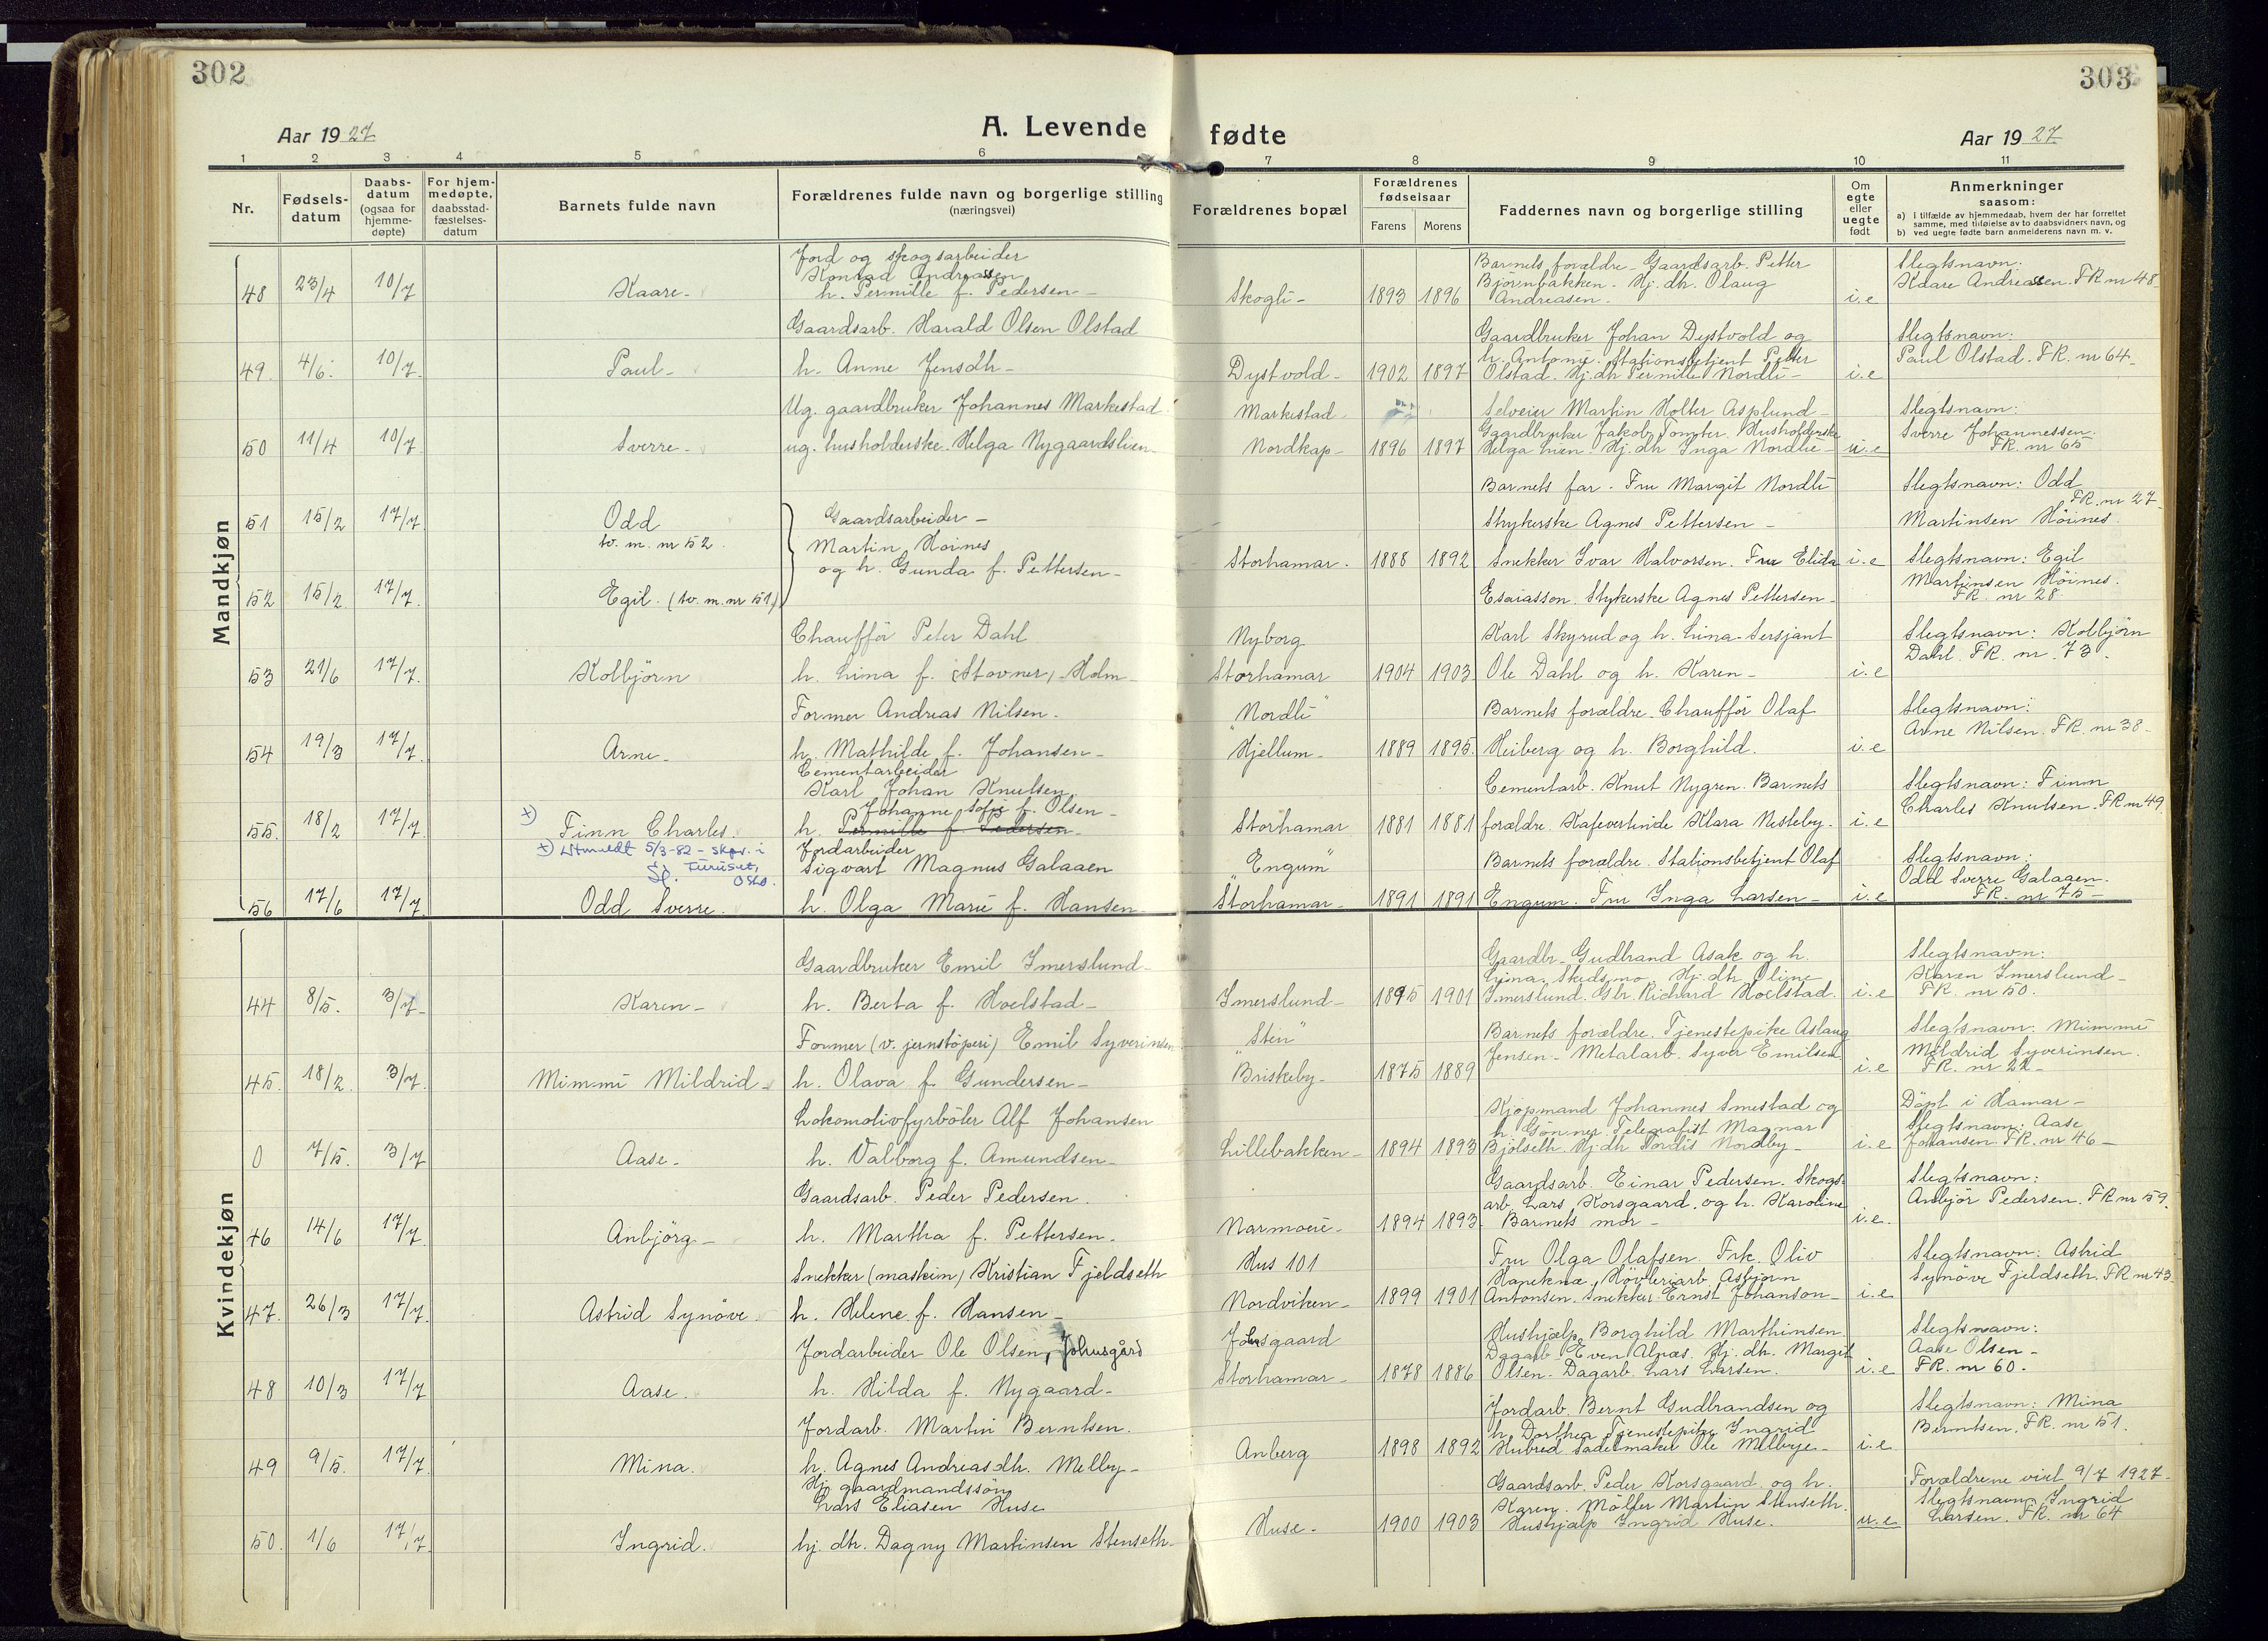 302
303
Aar 1927
A. Levende
fødte
Aar 1927
1 2 3 4 5 6 7 8 9 10 11
Nr.
Fødsels-
datum
Daabs-
datum
(ogsaa for
hjemme-
døpte)
For hjem-
medøpte,
daabsstad-
fæstelses-
datum
Barnets fulde navn
Forældrenes fulde navn og borgerlige stilling
(næringsvei)
Forældrenes bopæl
Forældrenes
fødselsaar
Farens Morens
Faddernes navn og borgerlige stilling
Om
egte
eller
uegte
født
Anmerkninger
saasom:
a) i tilfælde av hjemmedaab, hvem der har forrettet
samme, med tilføielse av to daabsvidners navn, og
b) ved uegte fødte barn anmelderens navn m. v.
Mandkjøn
48 23/4 10/7 Kaare-
Jord og skogsarbeider
Konrad Andreassen
h. Pernille f. Pedersen-
Skogli- 1893 1896
Barnets forældre- Gaardsarb. Petter
Bjørnbakken. Hj. dh. Olaug
Andreasen.
i.e
Slegtsnavn:
Kaare Andreassen. FR nr 48-
49. 4/6. 10/7. Paul-
Gaardsarb. Harald Olsen Olstad
h. Anne Jensdh-
Dystvold- 1902 1897
Gaardbruker Johan Dystvold og
h. Antony. Stationsbetjent Petter
Olstad. Hj.dh Pernille Nordli-
i.e
Slegtsnavn:
Paul Olstad. FR. nr 64-
50 11/4 10/7 Sverre-
Ug. gaardbruker Johannes Markestad.
ug. husholderske. Helga Nygaardslien-
Markestad-
Nordkap- 1896 1897
Selveier Martin Holter Asplund-
Gaardbruker Jakob Tomter. Husholderske
Helga Lien Hj. dh Inga Nordlie-
u.e
Slegtsnavn:
Sverre Johannessen.
FR. nr 65
51 15/2 17/7. Odd
tv. m. nr 52.
52 15/2. 17/7. Egil. (tv. m. nr 51)
Gaardsarbeider-
Martin Høines
og h. Gunda f. Pettersen-
Storhamar. 1888 1892
Barnets far. Fru Margit Nordli
Strykerske Agnes Pettersen-
Snekker Ivar Halvorsen. Fru Elida
Esaiasson. Strykerske Agnes Pettersen-
i.e
Slegtsnavn: Odd
FR. nr 27-
Martinsen Höines.
Slegtsnavn: Egil
Martinsen Höines.
FR. nr 28.
53 21/6 17/7. Kolbjörn
Chaufför Peter Dahl
h. Lina f. (Stovner) Holm-
Nyborg
Storhamar 1904 1903
Karl Skyrud og h. Lina- Sersjant
Ole Dahl og h. Karen-
i.e
Slegtsnavn: Kolbjörn
Dahl. FR. nr. 73.
54 19/3 17/7. Arne.
Former Andreas Nilsen.
h. Mathilde f. Johansen-
"Nordli"
Hjellum- 1889 1895.
Barnets forældre. Chauffør Olaf
Heiberg og h. Borghild.
i.e
Slegtsnavn:
Arne Nilsen. FR. nr 38-
55. 18/2 17/7. x) Finn Charles.
x) Utmeldt 5/3-82- skpr. i
Furuset,
Oslo.
Cementarbeider
Karl Johan Knutsen.
Johanne Sofie f. Olsen-
h. Pernille f Pedersen-
Storhamar 1881 1881
Cementarb. Knut Nygren. Barnets
forældre. Kafevertinde Klara Nesteby.
i.e
Slegtsnavn: Finn
Charles Knutsen. FR nr 49.
56 17/6 17/7. Odd Sverre.
Jordarbeider
Sigvart Magnus Galaaen
h. Olga Marie f. Hansen.
"Engum"
Storhamar- 1891 1891
Barnets forældre. Stationsbetjent Olaf
Engum. Fru Inga Larsen-
i.e
Slegtsnavn:
Odd Sverre Galaaen.
FR. nr 75-
Kvindekjøn
44 8/5. 3/7- Karen-
Gaardbruker Emil Imerslund-
h. Berta f. Hoelstad-
Imerslund- 1895 1901
Gaardbr- Gudbrand Asak og h.
Lina, Skedsmo. Hj. dh Oline
Imerslund. Gbr. Richard Hoelstad.
i.e
Slegtsnavn:
Karen Imerslund-
FR. nr 50.
45. 18/2. 3/7. Mimmi Mildrid-
Former (v. jernstöperi) Emil Syverinsen
h. Olava f. Gundersen-
"Sten"
Briskeby- 1875 1889
Barnets forældre. Tjenestepike Aslaug
Jensen- Metalarb. Syver Emilsen
i.e
Slegtsnavn: Mimmi
Mildrid Syverinsen.
FR. nr 22-
0 7/5. 3/7 Aase.
Lokomotivfyrböter Alf Johansen
h. Valborg f. Amundsen-
Lillebakken- 1894 1893
Kjøpmand Johannes Smestad og
h. Gønner. Telegrafist Magnar
Bjølseth. Hj dh Tordis Nordby-
i.e
Döpt i Hamar-
Slegtsnavn: Aase
Johansen. FR. nr 46-
46 14/6 17/7. Anbjörg-
Gaardsarb. Peder Pedersen.
h. Martha f. Pettersen.
Narmoeie- 1894 1893
Gaardsarb. Einar Pedersen. Skogs-
arb. Lars Korsgaard. og h. Karoline
Barnets mor-
i.e.
Slegtsnavn:
Anbjör Pedersen. FR nr 59.
47. 26/3 17/7. Astrid Synöve.
Snekker (maskin) Kristian Fjeldseth
h. Helene f. Hansen-
Hus 101
Nordviken- 1899 1901
Fru Olga Olafsen. Frk. Oliv
Haneknæ, Høvleriarb. Asbjørn
Antonsen. Snekker Ernst Johanson-
i.e
Slegtsnavn: Astrid
Synöve Fjeldseth. FR nr 43.
48 10/3 17/7 Aase.
Jordarbeider Ole Olsen, Johusgård
h. Hilda f. Nygaard-
Johusgaard
Storhamar- 1878 1886
Hushjælp Borghild Marthinsen.
Dagarb Even Alnæs. Hj. dh. Margit
Olsen- Dagarb. Lars Larsen.
i.e
Slegtsnavn:
Aase Olsen-
FR. nr 60.
49 9/5. 17/7. Mina.
Jordarb. Martin Berntsen.
h. Agnes Andreasdh. Melby-
Anberg 1898 1892
Jordarb. Bernt Gudbrandsen og
h. Dorthea Tjenestepike Ingrid
Hubred Sadelmaker Ole Melbye-
i.e
Slegtsnavn: Mina
Berntsen. FR. nr 51.
50. 1/6 17/7. Ingrid.
Hj gaardmandssön
Lars Eliasen Huse
hj. dh. Dagny Martinsen Stenseth-
Huse- 1900 1903
Gaardsarb. Peder Korsgaard og h.
Karen. Møller Martin Stenseth.
Hushjælp Ingrid Huse.
u.e
Forældrene viet 9/7 1927-
Slegtsnavn: Ingrid
Larsen. FR. nr 64